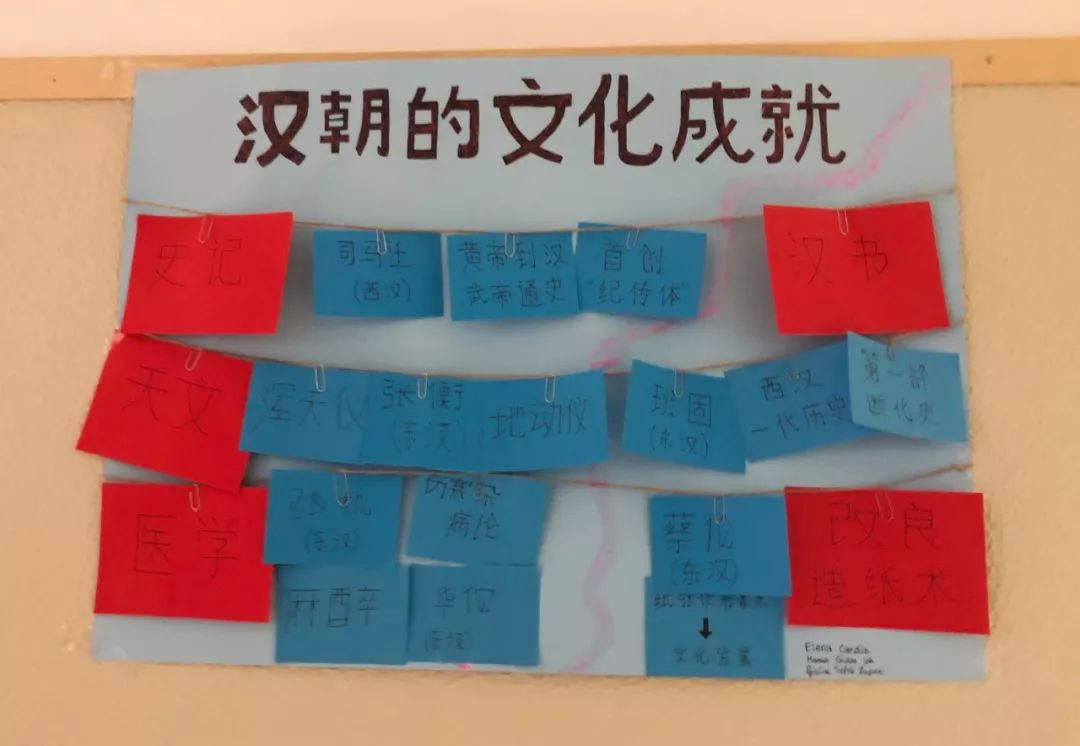 汉朝的文化成就
史记
司马迁
(西汉)
黄帝到汉
武帝通史
首创
"纪传体"
汉书
天文
浑天仪
张衡
(东汉)
地动仪
班固
(东汉)
西汉
一代历史
第一部
断代史
医学
张机
(东汉)
病论
麻醉
华佗
(东汉)
蔡伦
(东汉)
↓
文化发展
改良
造纸术
Elena